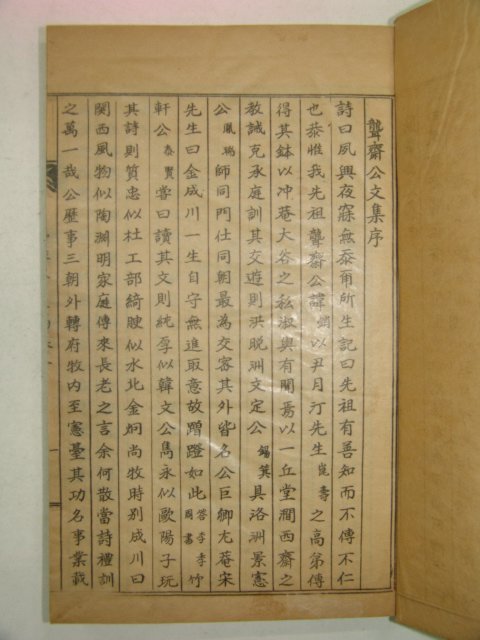 聾齋公文集序
詩曰夙興夜寐無忝甭所生記曰先祖有善知而不傳不仁
也恭惟我先祖聾齋公諱以尹月汀先生崑壽之高弟傳
得其鉢以冲菴大谷之私淑與有聞焉以一丘堂澗西齋之
敎誠克承庭訓其交遊則洪脫洲文定公錫箕具洛洲景憲
公鳳瑞師同門仕同朝最爲交客其外皆名公巨卿尤菴宋
先生曰金成川一生自守無進取意故蹭蹬如此答李季竹周書
軒公泰賢嘗曰讀其文則純厚似韓文公雋永似歐陽子玩
其詩則質忠似杜工部綺脕似水北金炯尙牧時别成川曰
関西風物似陶淵明家庭傳來長老之言余何敢當詩禮訓
之萬一哉公歷事三朝外轉府牧内至憲臺其功名事業載